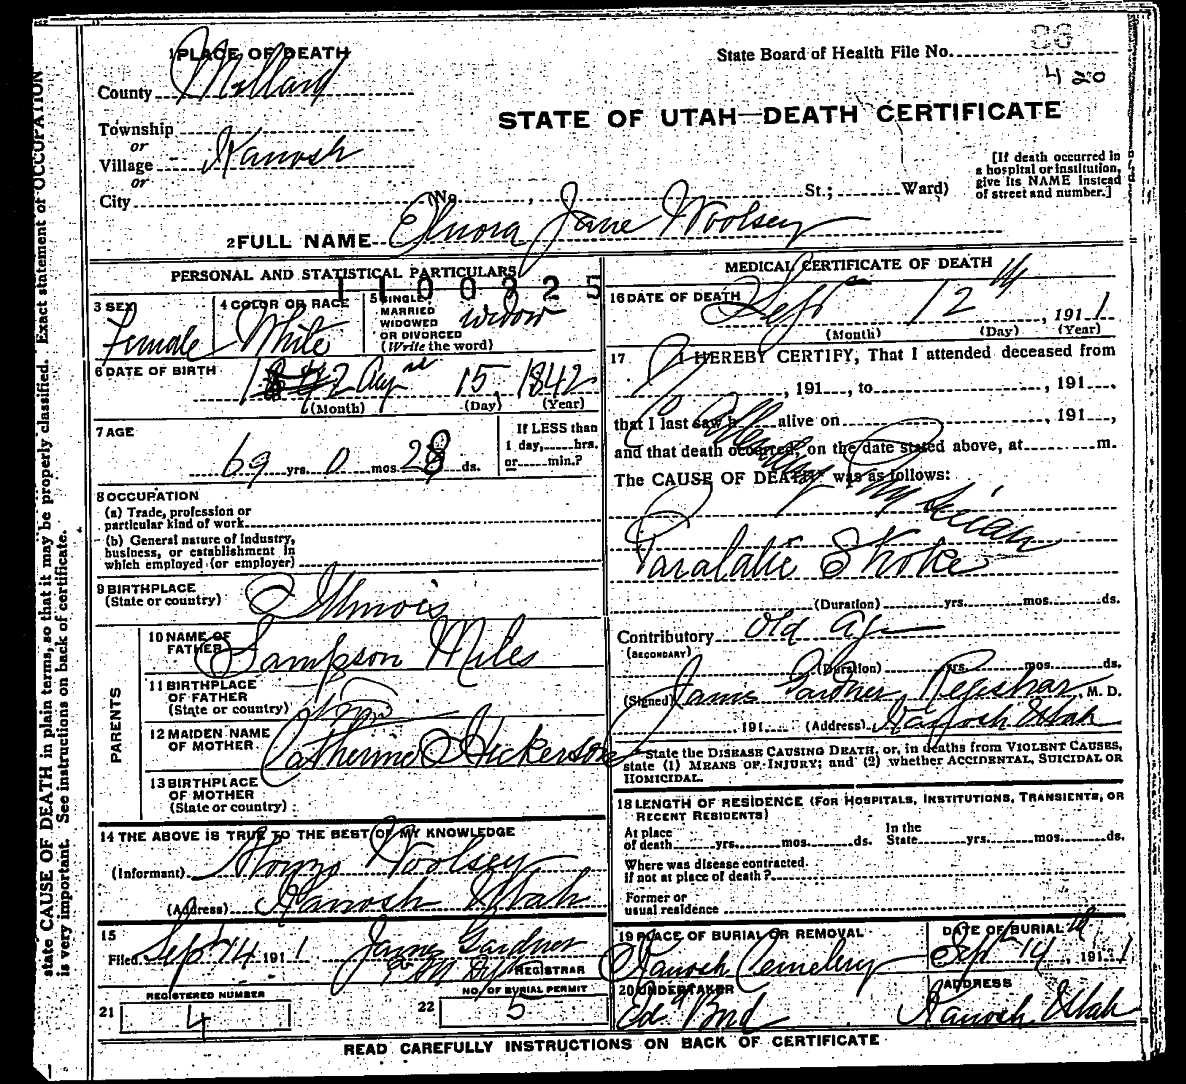 1 PLACE OF DEATH
State Board of Health File No.
86
420
County Millard
STATE OF UTAH—DEATH CERTIFICATE
Township
or
Village Kanosh
or
City
(No. , St.; Ward)
[If death occurred in
a hospital or institution,
give its NAME instead
of street and number.]
2 FULL NAME Elnora Jane Woolsey
PERSONAL AND STATISTICAL PARTICULARS
1100325
3 SEX Female
4 COLOR OR RACE White
5 SINGLE,
MARRIED
WIDOWED
OR DIVORCED
(Write the word)
widow
6 DATE OF BIRTH
Aug 15, 1842
(Month) (Day) (Year)
7 AGE
69 yrs. 0 mos. 28 ds.
If LESS than
1 day, hrs.
or min.?
8 OCCUPATION
(a) Trade, profession or
particular kind of work
(b) General nature of industry,
business, or establishment in
which employed (or employer)
9 BIRTHPLACE
(State or country)
Illinois
PARENTS
10 NAME OF
FATHER
Sampson Miles
11 BIRTHPLACE
OF FATHER
(State or country)
12 MAIDEN NAME
OF MOTHER
Catherine Dickerson
13 BIRTHPLACE
OF MOTHER
(State or country)
14 THE ABOVE IS TRUE TO THE BEST OF MY KNOWLEDGE
(Informant) Woolsey
(Address) Kanosh Utah
15
Filed Sept 14 1911 James Gardner
REGISTRAR
REGISTERED NUMBER
21 4
NO. OF BURIAL PERMIT
22 5
MEDICAL CERTIFICATE OF DEATH
16 DATE OF DEATH
Sept 12 th, 1911
(Month) (Day) (Year)
17 I HEREBY CERTIFY, That I attended deceased from
, 191 , to , 191 ,
that I last saw h alive on , 191 ,
and that death occurred, on the date stated above, at m.
The CAUSE OF DEATH* was as follows:
No Attending Physician
Paralatic Stroke
(Duration) yrs. mos. ds.
Contributory Old Age
(SECONDARY)
(Duration) yrs. mos. ds.
(Signed) James Gardner, Registrar, M. D.
, 191 (Address) Kanosh Utah
*State the DISEASE CAUSING DEATH, or, in deaths from VIOLENT CAUSES,
state (1) MEANS OF INJURY; and (2) whether ACCIDENTAL, SUICIDAL OR
HOMICIDAL.
18 LENGTH OF RESIDENCE (FOR HOSPITALS, INSTITUTIONS, TRANSIENTS, OR
RECENT RESIDENTS)
At place
of death yrs. mos. ds.
In the
State yrs. mos. ds.
Where was disease contracted
if not at place of death?
Former or
usual residence
19 PLACE OF BURIAL OR REMOVAL
Kanosh Cemetery
DATE OF BURIAL
Sept 14, 1911
20 UNDERTAKER
Ed Bird
ADDRESS
Kanosh Utah
READ CAREFULLY INSTRUCTIONS ON BACK OF CERTIFICATE
state CAUSE OF DEATH in plain terms, so that it may be properly classified. Exact statement of OCCUPATION
is very important. See instructions on back of certificate.